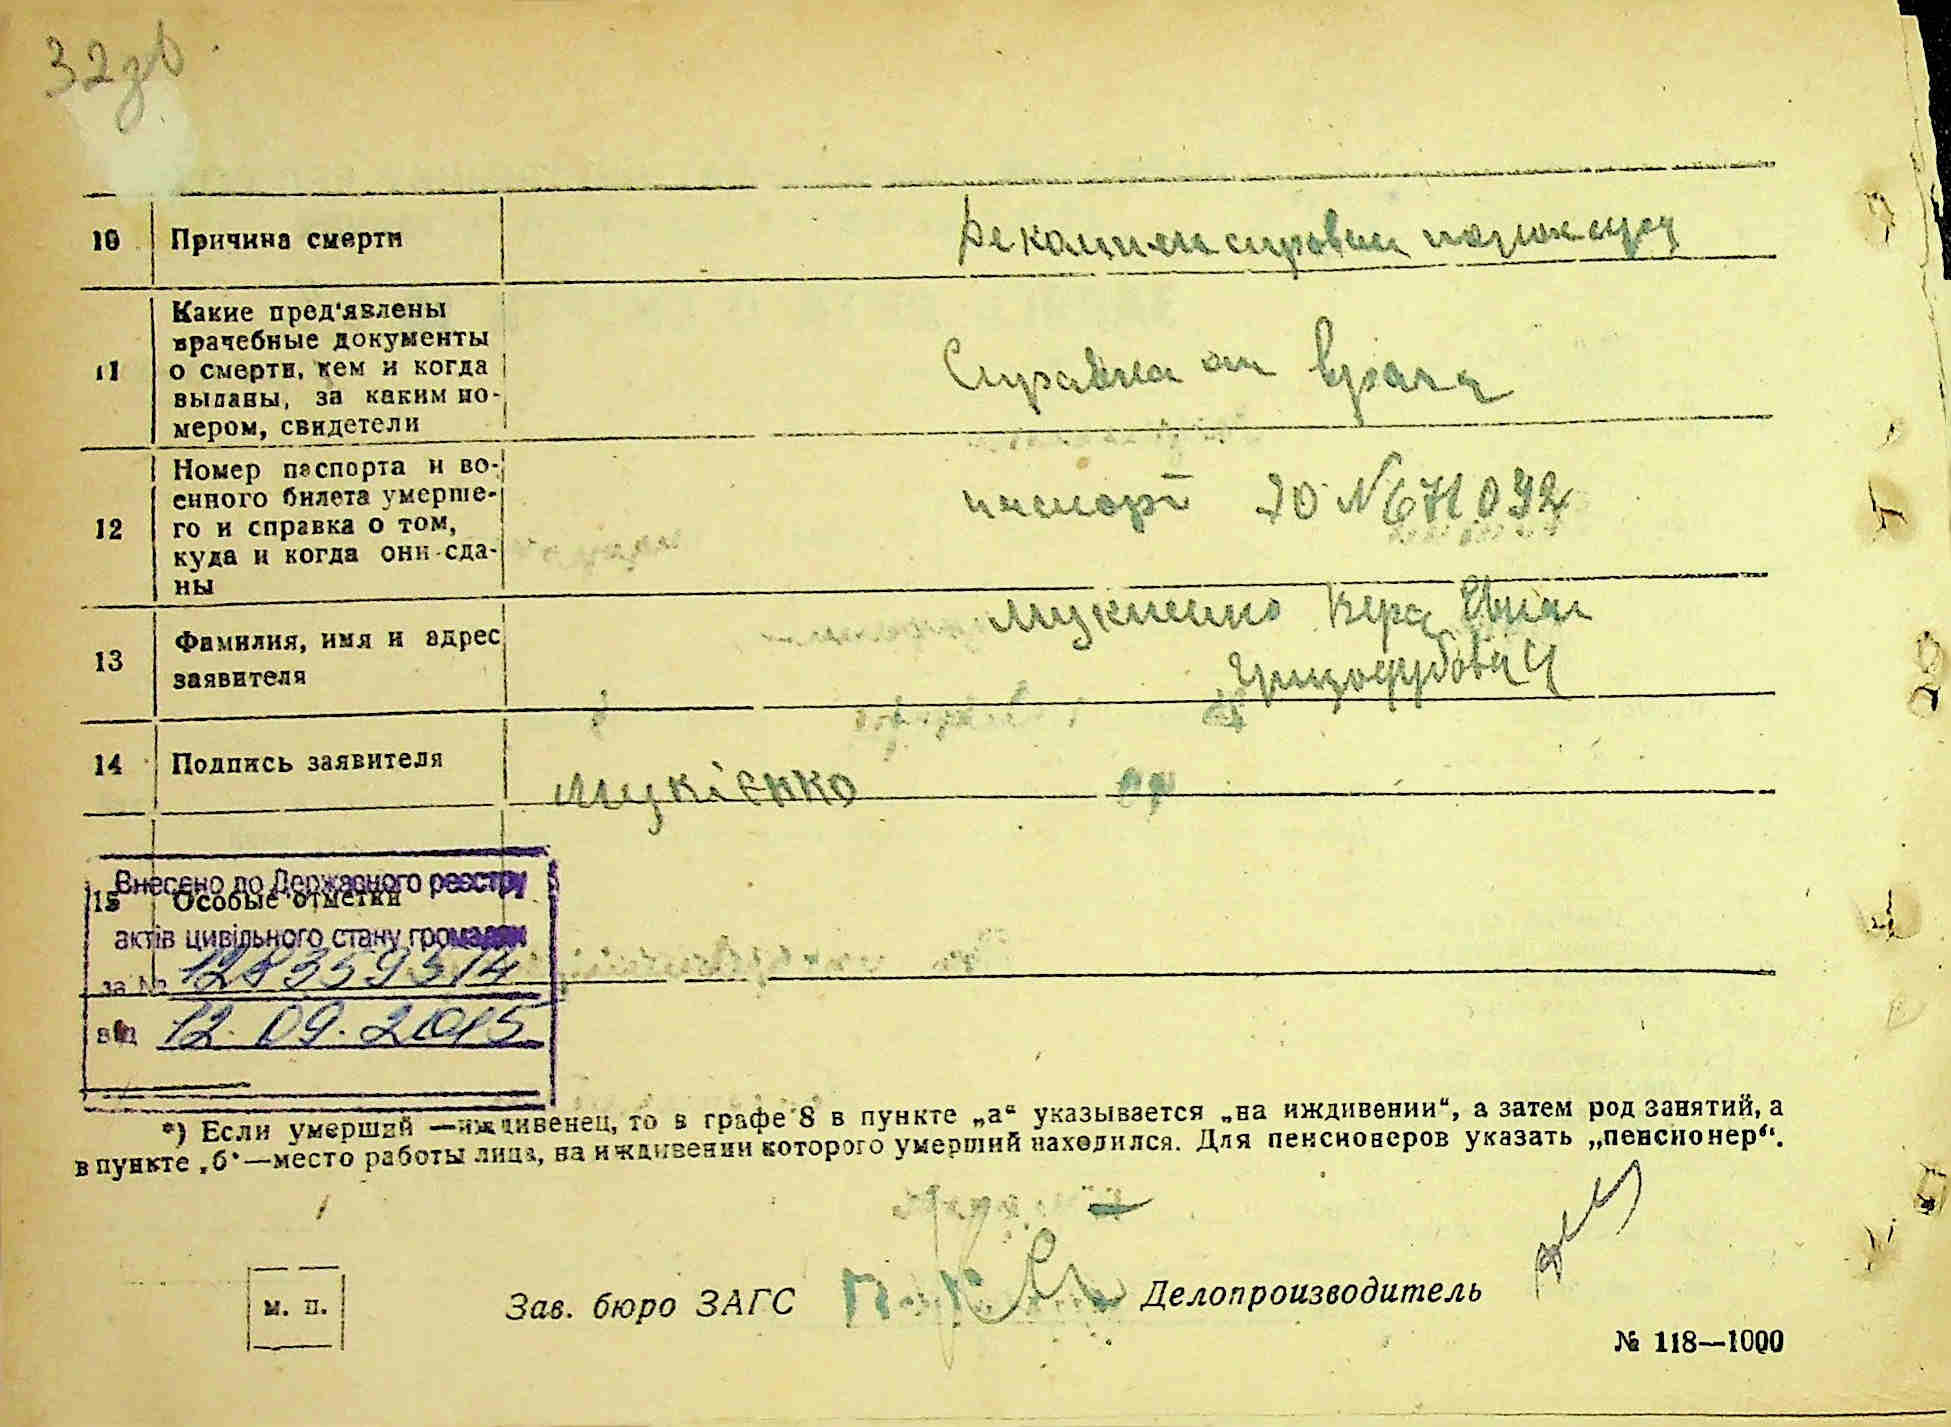 32зв.
10 Причина смерти
Какие пред'явлены
врачебные документы
11 о смерти, кем и когда Справка от врача
выданы, за каким но-
мером, свидетели
Номер паспорта и во-
енного билета умерше- паспорт
12 го и справка о том,
куда и когда они сда-
ны
13 Фамилия, имя и адрес
заявителя
14 Подпись заявителя Мукієнко
Внесено до Державного реєстру
15 Особые отметки
актів цивільного стану громадян
за № 128359314
від 12.09.2015
*) Если умерший —иждивенец, то в графе 8 в пункте „а“ указывается „на иждивении“, а затем род занятий, а
в пункте „б“—место работы лица, на иждивении которого умерший находился. Для пенсионеров указать „пенсионер“.
м. п. Зав. бюро ЗАГС Делопроизводитель
№ 118—1000